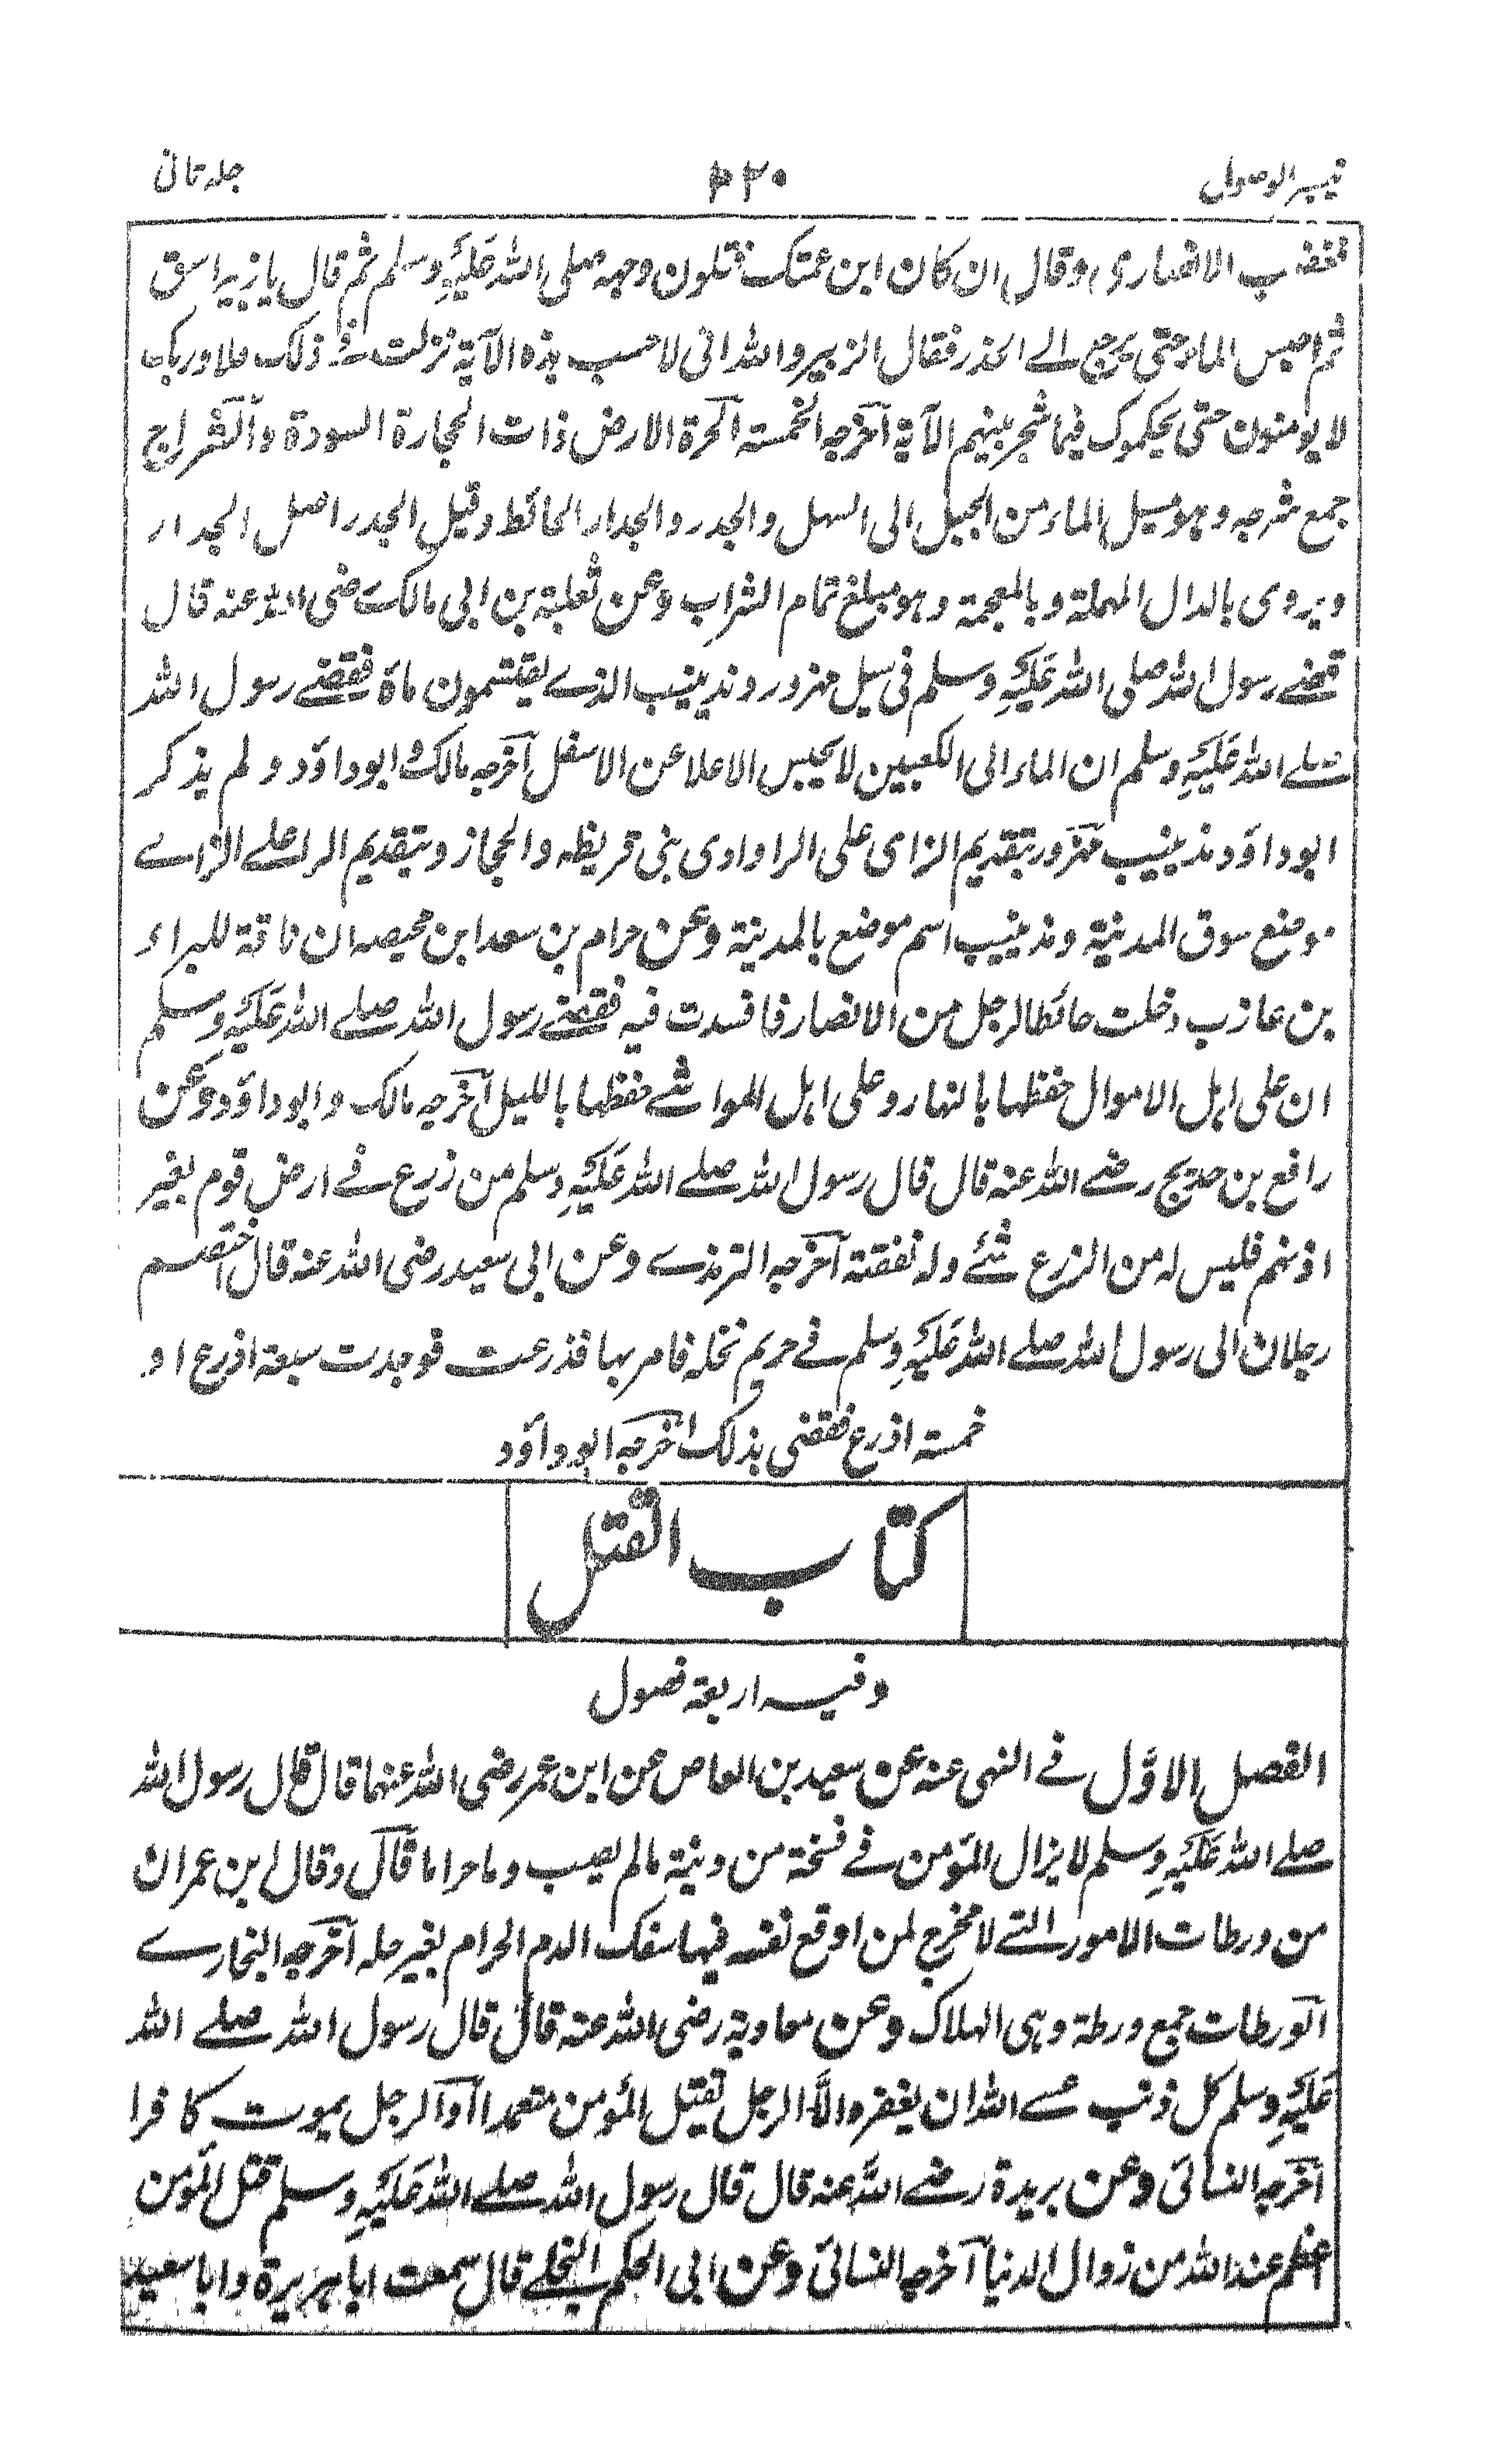 تيسير الوصول ٢٢٠ جلد ثانى
فغضب الانصارى وقال ان كان ابن عمتك فتلون وجهه صلى الله عَلَيْهِ وسلم ثم قال يا زبير اسق
ثم احبس الماء حتى يرجع الے الجذر فقال الزبير والله انى لاحسب هذه الآية نزلت فے ذلك فلا وربك
لا يومنون حتى يحكموك فيما شجر بينهم الآية آخرجه الخمسته الحرة الارض ذات الحجارة السودة والشراج
جمع شرجه وهو مسيل الماء من الجبل الى السهل والجدر والجدار الحائط وقيل الجدر اصل الجدار
ويروى بالدال المهملة وبالمعجمة وهو مبلغ تمام الشراب وعن ثعلبة بن ابى مالك رضى الله عنه قال
قضے رسول الله صلى الله عَلَيْهِ وسلم فى سيل مهزور ومذينيب الذے يقتسمون ماة فقضے رسول الله
صلے الله عَلَيْهِ وسلم ان الماء الى الكعبين لا يحبس الاعلا عن الاسفل آخرجه مالك وابو داوٓد ولم يذكر
ابو داوٓد مذينيب مهزور بتقديم الزاى على الرا وادى بنى قريظه والحجاز وبتقديم الرا علے الزاے
موضع سوق المدنية ومذينيب اسم موضع بالمدينة وعن حرام بن سعد ابن محيصه ان ناقة للبراء
بن عازب دخلت حائطا لرجل من الانصار فافسدت فيه فقضے رسول الله صلے الله عَلَيْهِ وسلم
ان على اهل الاموال حفظها بالنهار وعلى اهل المواشے حفظها بالليل آخرجه مالك وابو داوٓد وعن
رافع بن خديج رضے الله عنه قال قال رسول الله صلے الله عَلَيْهِ وسلم من زرع فے ارض قوم بغير
اذنهم فليس له من الزرع شئے وله نفقته آخرجه الترمذے وعن ابى سعيد رضى الله عنه قال اختصم
رجلان الى رسول الله صلے الله عَلَيْهِ وسلم فے حريم نخله فامر بها فذرعت فوجدت سبعة اذرع او
خمسته اذرع فقضى بذلك آخرجه ابو داوٓد
كتاب القتل
وفيه اربعة فصول
الفصل الاوَّل فے النهى عنه عن سعيد بن العاص عن ابن عمر رضى الله عنهما قال قال رسول الله
صلے الله عَلَيْهِ وسلم لا يزال المؤمن فے فسحة من دينه ما لم يصب وما حراما قال وقال ابن عمر ان
من ورطات الامور التے لا مخرج لمن اوقع نفسه فيها سفك الدم الحرام بغير حله آخرجه البخارے
الورطات جمع ورطة وهى الهلاك وعن معاوية رضى الله عنه قال قال رسول الله صلے الله
عَلَيْهِ وسلم كل ذنب عسے الله ان يغفره الَّا الرجل يقتل المؤمن متعمدا او الرجل يموت كافرا
آخرجه النسائى وعن بريدة رضے الله عنه قال قال رسول الله صلے الله عَلَيْهِ وسلم قتل المؤمن
اعظم عند الله من زوال الدنيا آخرجه النسائى وعن ابى الحكم البجلے قال سمعت ابا هريرة وابا سعيد